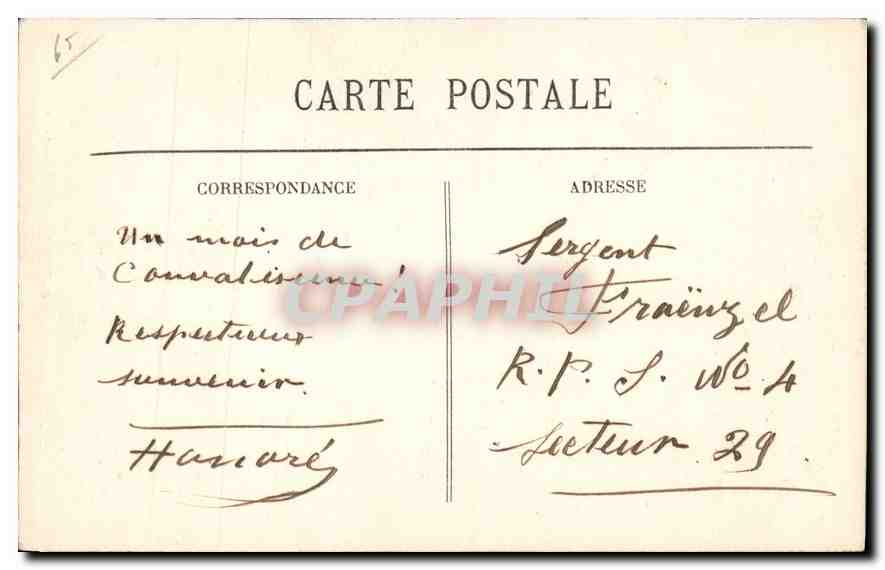 65
CARTE POSTALE
CORRESPONDANCE
Un mois de
Convalisence!
Respectueux
souvenir.
Honoré
ADRESSE
Sergent
Fraënzel
R. P. S. No 4
Secteur 29.
CPAPHIL